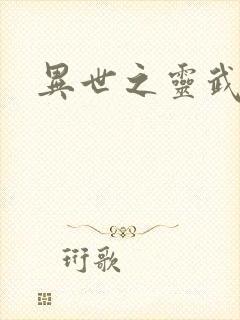 異世之靈武
珩歌